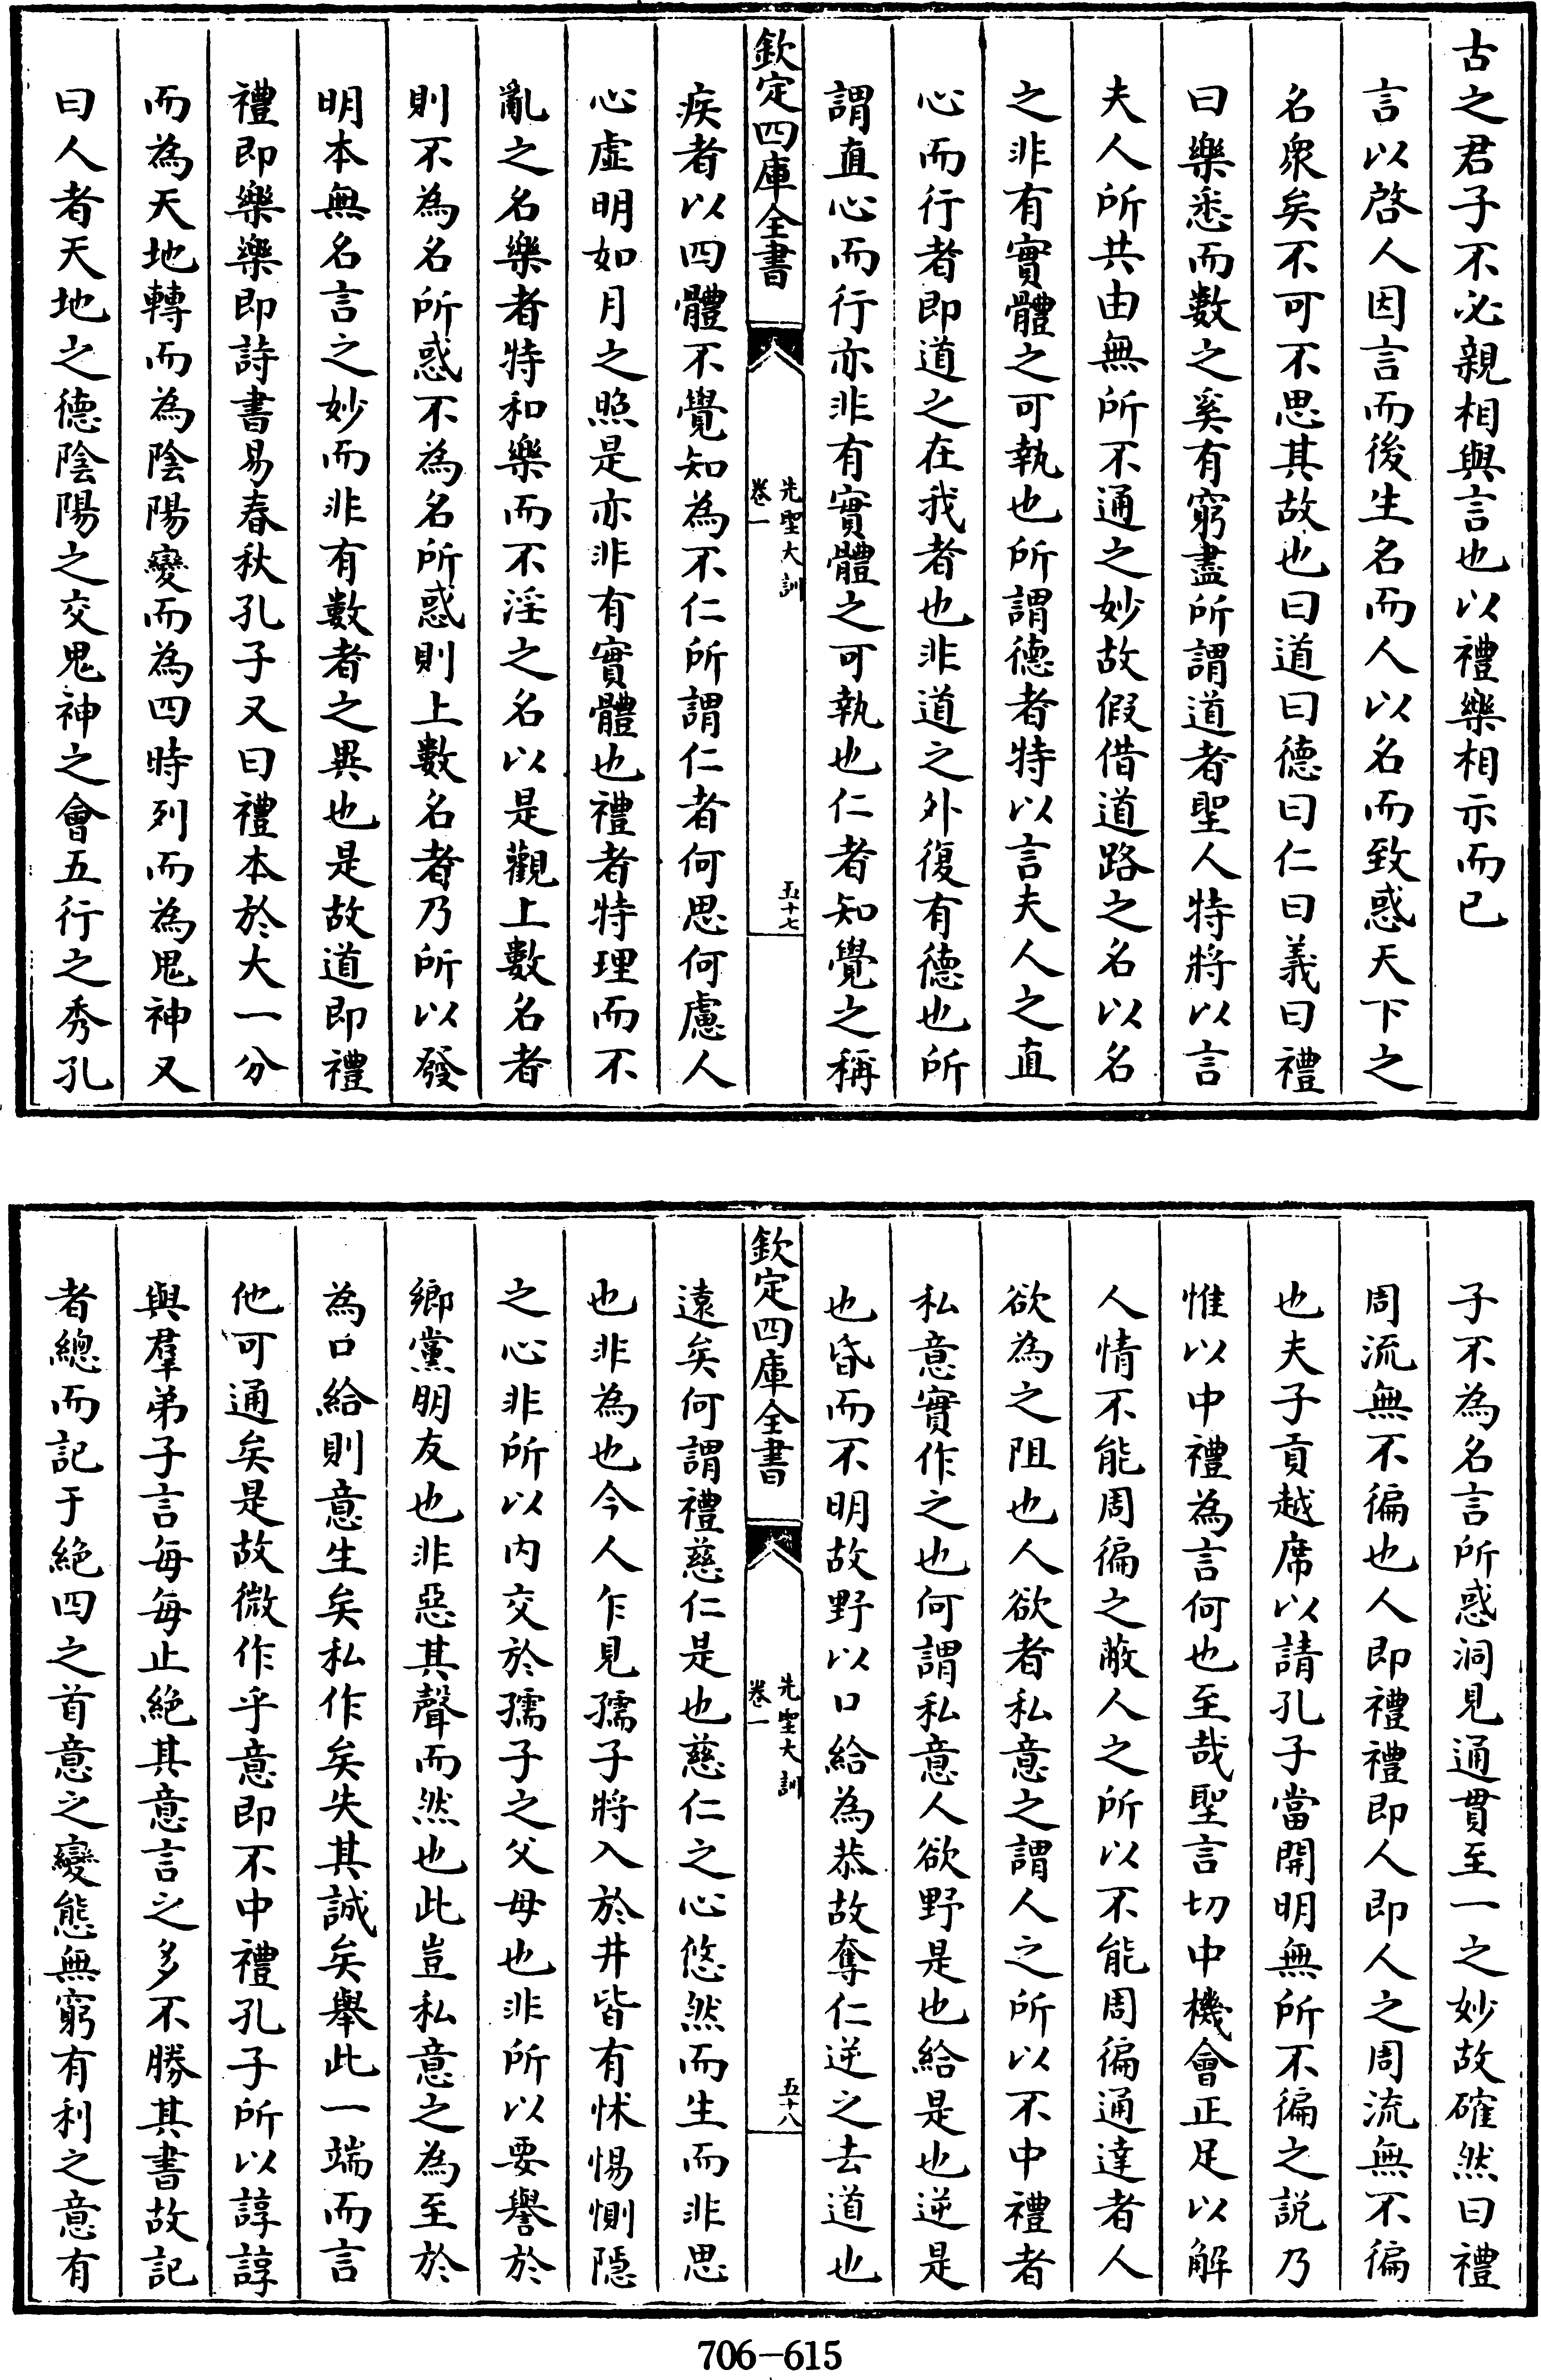 古之君子不必親相與言也以禮樂相示而已
言以啓人因言而後生名而人以名而致惑天下之
名衆矣不可不思其故也曰道曰德曰仁曰義曰禮
曰樂悉而數之奚有窮盡所謂道者聖人特將以言
夫人所共由無所不通之妙故假借道路之名以名
之非有實體之可執也所謂德者特以言夫人之直
心而行者即道之在我者也非道之外復有德也所
謂直心而行亦非有實體之可執也仁者知覺之稱
欽定四庫全書
先聖大訓
卷一
五十七
疾者以四體不覺知為不仁所謂仁者何思何慮人
心虛明如月之照是亦非有實體也禮者特理而不
亂之名樂者特和樂而不淫之名以是觀上數名者
則不為名所惑不為名所惑則上數名者乃所以發
明本無名言之妙而非有數者之異也是故道即禮
禮即樂樂即詩書易春秋孔子又曰禮本於大一分
而為天地轉而為陰陽變而為四時列而為鬼神又
曰人者天地之德陰陽之交鬼神之會五行之秀孔
子不為名言所惑洞見通貫至一之妙故確然曰禮
周流無不徧也人即禮禮即人即人之周流無不徧
也夫子貢越席以請孔子當開明無所不徧之說乃
惟以中禮為言何也至哉聖言切中機會正足以解
人情不能周徧之蔽人之所以不能周徧通達者人
欲為之阻也人欲者私意之謂人之所以不中禮者
私意實作之也何謂私意人欲野是也給是也逆是
也昏而不明故野以口給為恭故奪仁逆之去道也
欽定四庫全書
先聖大訓
卷一
五十八
遠矣何謂禮慈仁是也慈仁之心悠然而生而非思
也非為也今人乍見孺子將入於井皆有怵惕惻隱
之心非所以內交於孺子之父母也非所以要譽於
鄉黨朋友也非惡其聲而然也此豈私意之為至於
為口給則意生矣私作矣失其誠矣舉此一端而言
他可通矣是故微作乎意即不中禮孔子所以諄諄
與羣弟子言每每止絕其意言之多不勝其書故記
者總而記于絕四之首意之變態無窮有利之意有
706-615